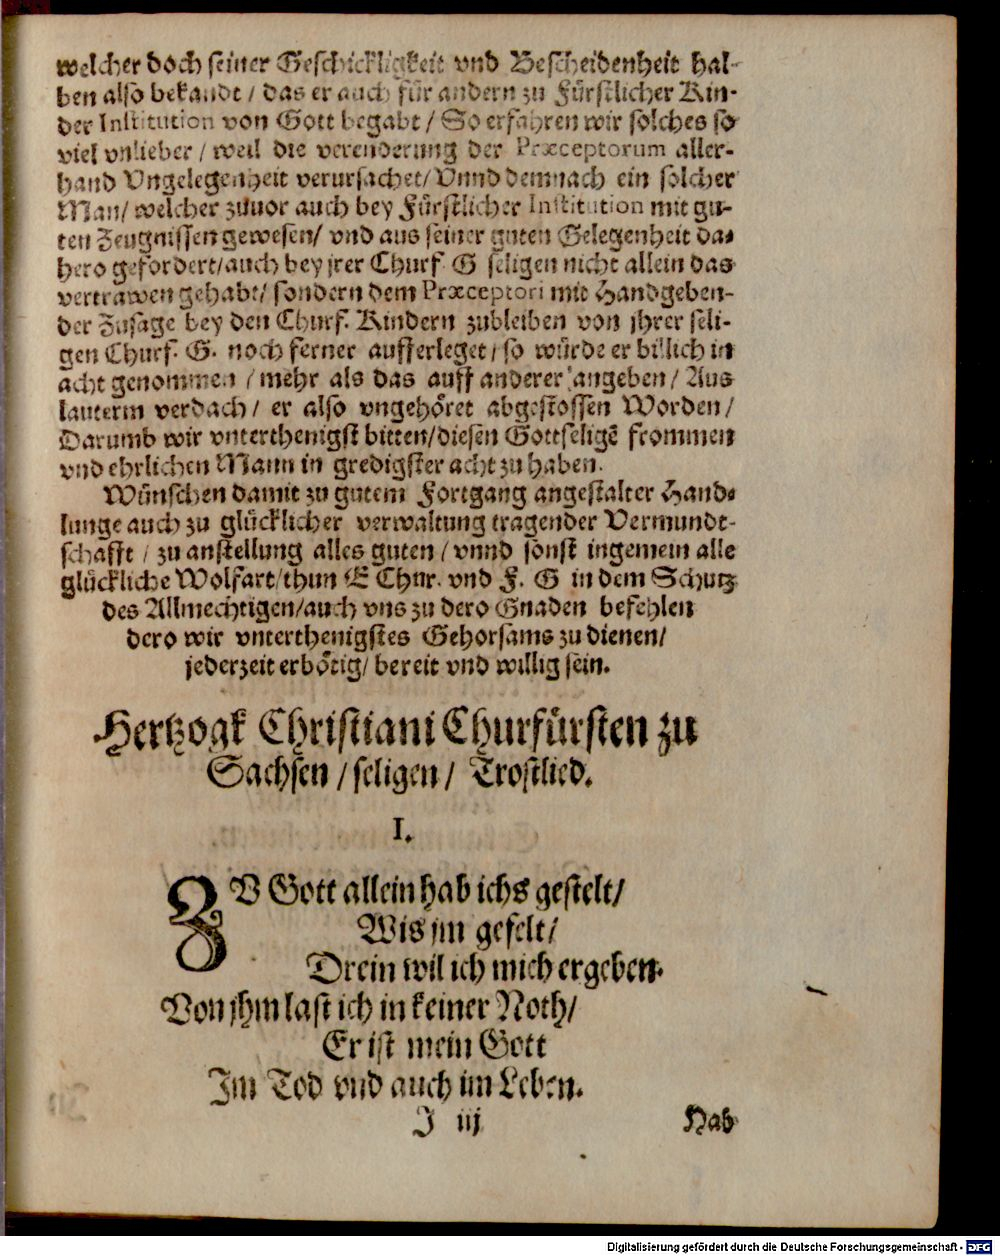 welcher doch seiner Geschickligkeit vnd Bescheidenheit hal-
ben also bekandt / das er auch für andern zu Fürstlicher Kin-
der Institution von Gott begabt / So erfahren wir solches so
viel vnlieber / weil die verenderung der Præceptorum aller-
hand Vngelegenheit verursachet / Vnnd demnach ein solcher
Man / welcher zuuor auch bey Fürstlicher Institution mit gu-
ten Zeugnissen gewesen / vnd aus seiner guten Gelegenheit da-
hero gefordert / auch bey jrer Churf. G seligen nicht allein das
vertrawen gehabt / sondern dem Præceptori mit Handgeben-
der Zusage bey den Churf. Kindern zubleiben von jhrer seli-
gen Churf. G. noch ferner aufferleget / so würde er billich in
acht genommen / mehr als das auff anderer angeben / Aus
lauterm verdach / er also vngehöret abgestossen Worden /
Darumb wir vnterthenigst bitten / diesen Gottseligē frommen
vnd ehrlichen Mann in gredigster acht zu haben.
Wünschen damit zu gutem Fortgang angestalter Hand-
lunge auch zu glücklicher verwaltung tragender Vermundt-
schafft / zu anstellung alles guten / vnnd sonst ingemein alle
glückliche Wolfart / thun E Chur. vnd F. G in dem Schutz
des Allmechtigen / auch vns zu dero Gnaden befehlen
dero wir vnterthenigstes Gehorsams zu dienen /
jederzeit erbötig / bereit vnd willig sein.
Hertzogk Christiani Churfürsten zu
Sachsen / seligen / Trostlied.
I.
ZV Gott allein hab ichs gestelt /
Wis jm gefelt /
Drein wil ich mich ergeben.
Von jhm last ich in keiner Noth /
Er ist mein Gott
Im Tod vnd auch im Leben.
J iij Hab
Digitalisierung gefördert durch die Deutsche Forschungsgemeinschaft - DFG